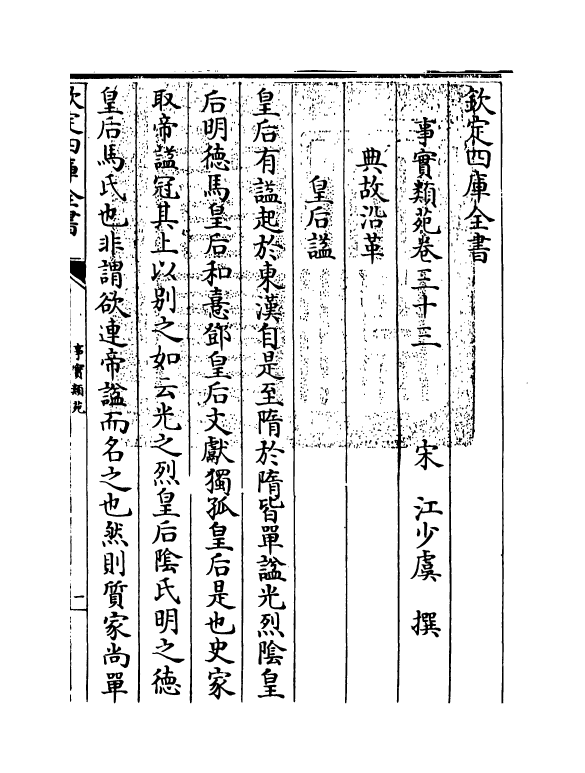 欽定四庫全書
事實類苑卷三十二　宋　江少虞　撰
典故沿革
皇后諡
皇后有諡起於東漢自是至隋於隋皆單諡光烈陰皇
后明德馬皇后和憙鄧皇后文獻獨孤皇后是也史家
取帝諡冠其上以别之如云光之烈皇后陰氏明之德
皇后馬氏也非謂欲連帝諡而名之也然則質家尚單
欽定四庫全書
事實類苑
一